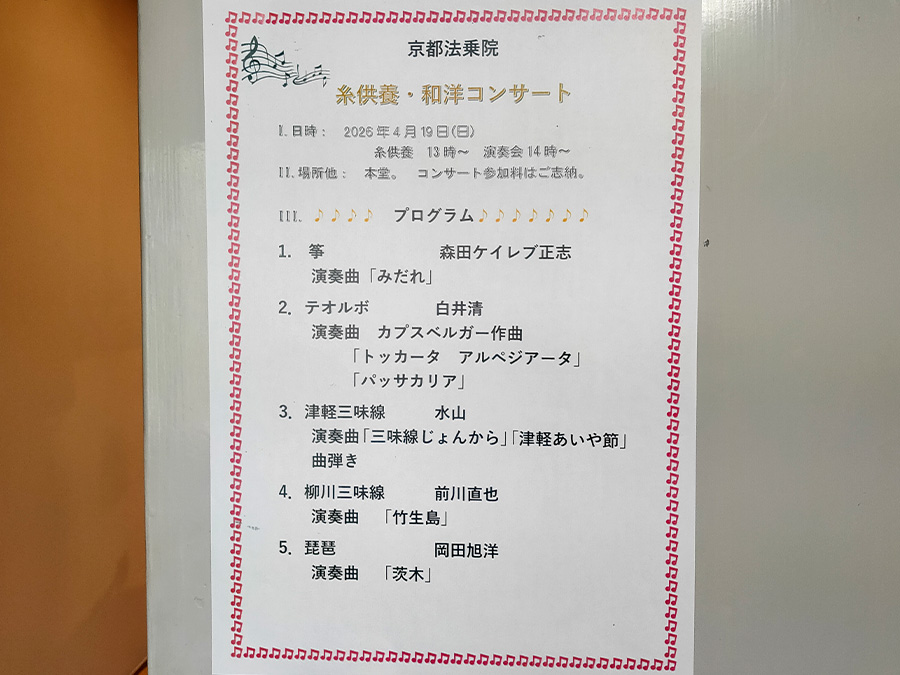 京都法乗院
糸供養・和洋コンサート
I.日時： 2026年4月19日(日)
糸供養 13時～ 演奏会14時～
II.場所他： 本堂。 コンサート参加料はご志納。
III. ♪♪♪♪ プログラム♪♪♪♪♪♪♪
1. 箏 森田ケイレブ正志
演奏曲「みだれ」
2. テオルボ 白井清
演奏曲 カプスベルガー作曲
「トッカータ アルペジアータ」
「パッサカリア」
3. 津軽三味線 水山
演奏曲「三味線じょんから」「津軽あいや節」
曲弾き
4. 柳川三味線 前川直也
演奏曲 「竹生島」
5. 琵琶 岡田旭洋
演奏曲 「茨木」